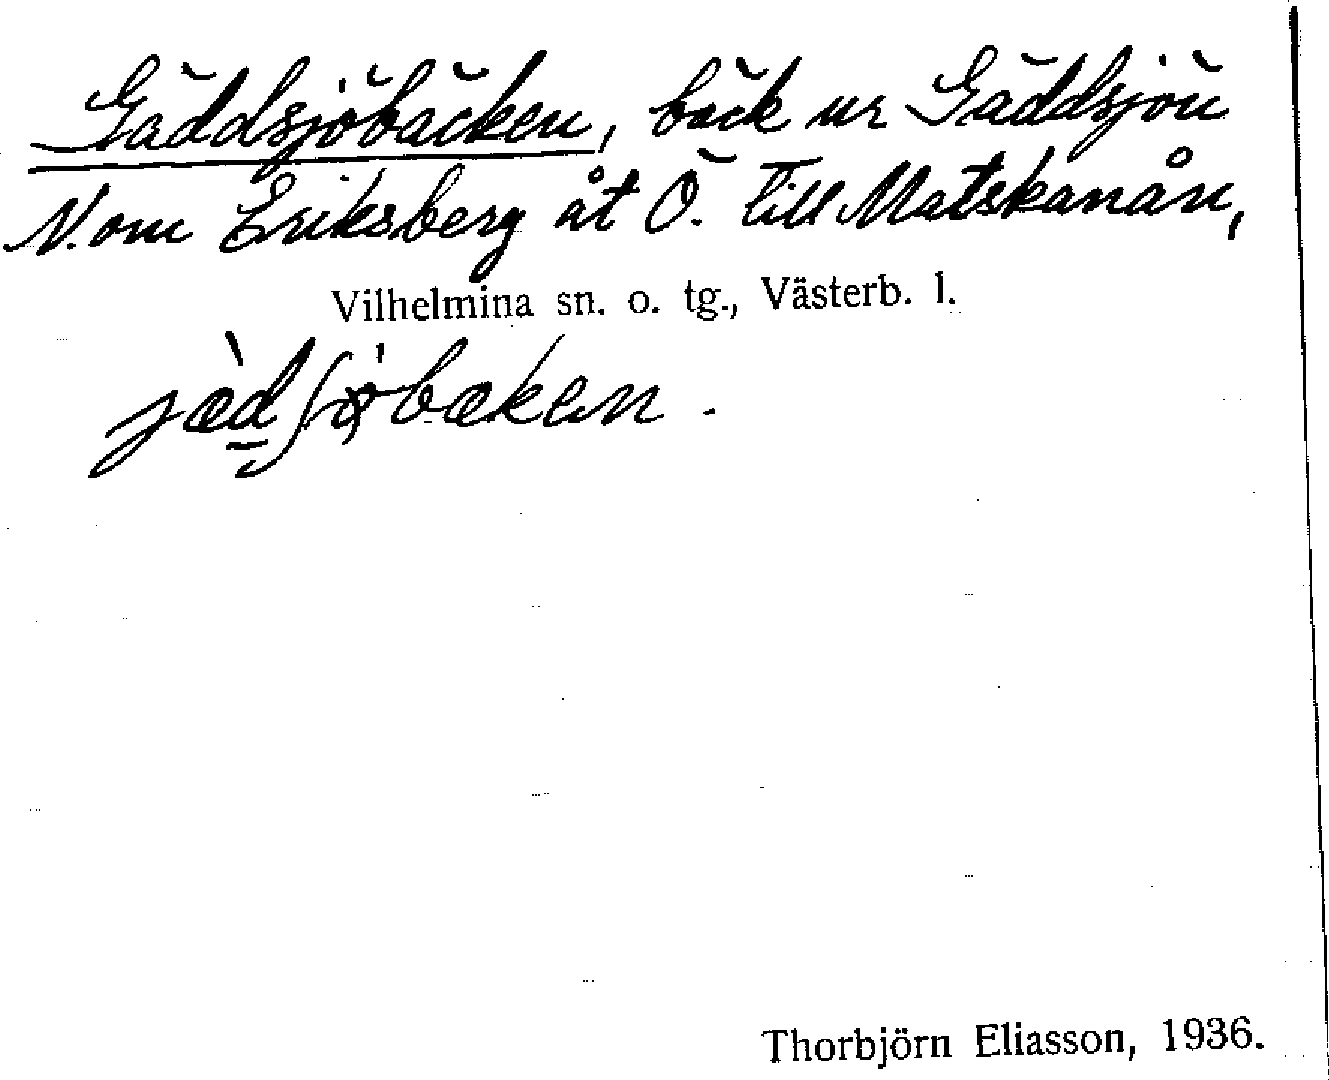 Gäddsjöbäcken, bäck ur Gäddsjön
N. om Eriksberg åt Ö. till Matskanån,
Vilhelmina sn. o. tg., Västerb. l.
jæ̀dʃø'bækæn.
Thorbjörn Eliasson, 1936.